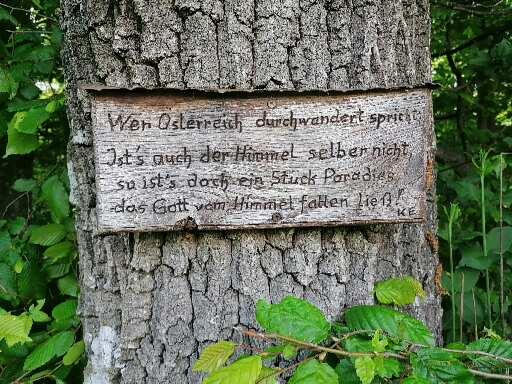 Wer Österreich durchwandert spricht:
Ist's auch der Himmel selber nicht,
so ist's doch ein Stück Paradies
das Gott vom Himmel fallen ließ!
KE